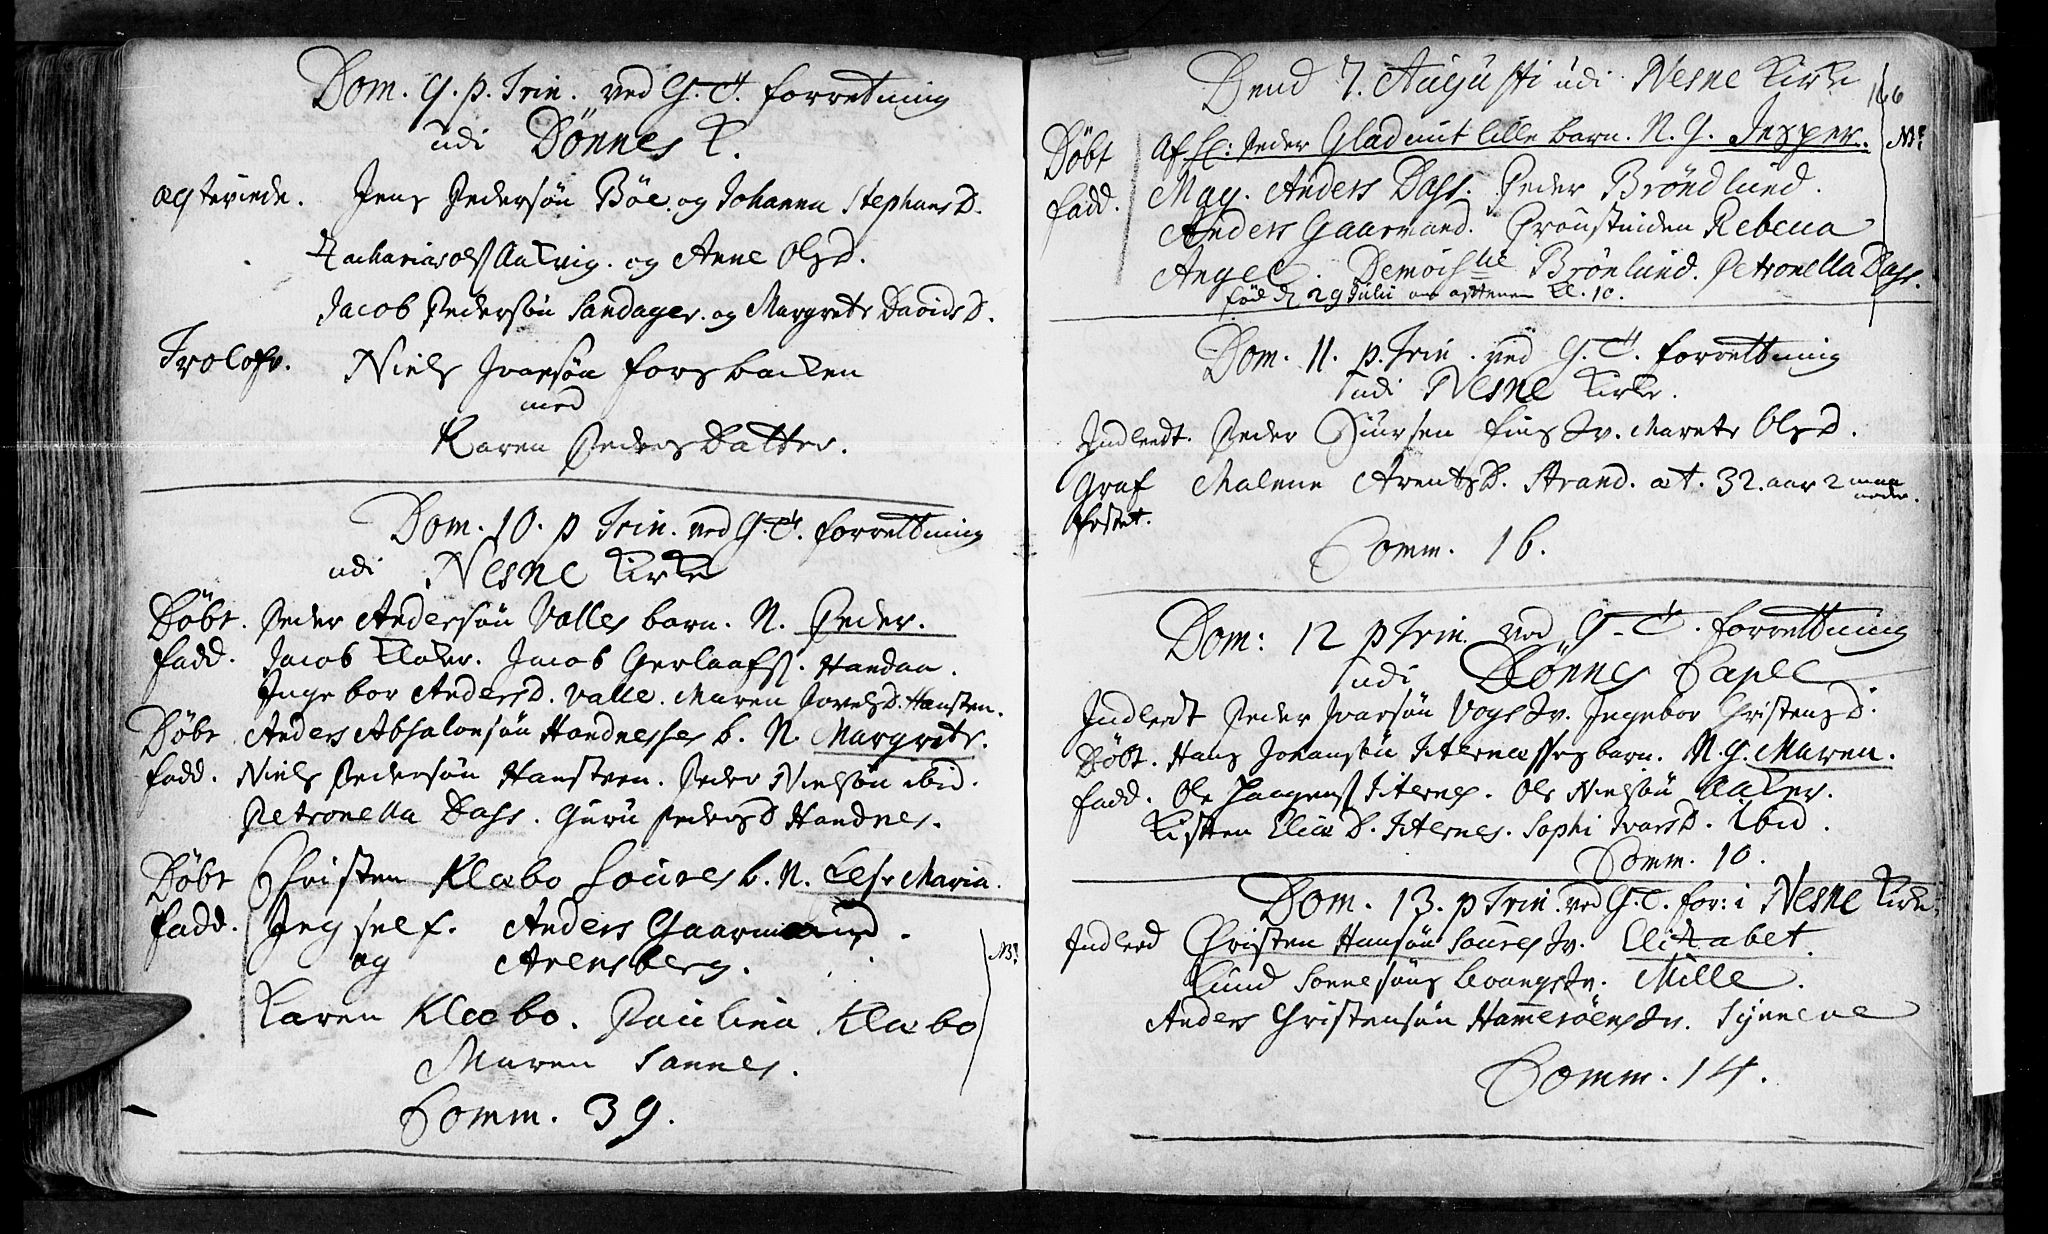 Dom. 9. p. Trin. ved G. T. forrettning
udi Dönnes K.
ægteviede. Jens Pedersön Böe og Johanna Stephans D.
Zacharias Ols Aakvig. og Anne Ols D.
Jacob Pedersön Sandager. og Margrete Davids D.
Trolofv. Niels Ivarsön Forsbacken
med
Karen Peders Datter.
Dom. 10. p Trin. ved G. T. forrettning
udi Nesne Kirke
Döbt. Peder Andersön Valles barn. N. Peder.
fadd. Jacob Kloker. Jacob Gerlaafs. Handaa.
Ingebor Anders D. Valle. Maren Povels D. Hansten.
Döbt Anders Absalonsön Handnesses b. N. Margrete.
fadd. Niels Pedersön Hansteen. Peder Nielsön ibid.
Petronella Dass. Guru Peders D Handnes.
Döbt Christen Klæbo Soures b. N. Maria.
fadd. Jeg self. Anders Gaarmand.
og Arensberg.
NB.
Karen Klæbo. Paulina Klæbo
Maren Sannes.
Comm. 39.
Dend 7. Augusti udi Nesne Kirke
166
Döbt Af Sr: Peder Glad mit lille barn. N. G. Jesper. NB.
fadd. Mag. Anders Dass. Peder Bröndlund.
Anders Gaarmand. Proustinden Rebecca
Angel. Demoiselle Brönlund. Petronella Dass.
föd d. 29 Julii om afftenen Kl. 10.
Dom. 11. p. Trin. ved G. T. forrettning
udi Nesne Kirke.
Indleedt. Peder Siursen Fins Hv. Marete Ols D.
Graf Malene Arents D. Strand. æt. 32. aar 2 maa
festet. neder.
Comm. 16.
Dom: 12 p Trin. ved G. T. forrettning
udi Dönnes Capel
Indledt Peder Ivarsön Vogs Hv. Ingebor Christens D.
Döbt. Hans Johansön Titernessses barn. N. G. Maren.
fadd. Ole Haagens Titernes. Ole Nielsön Aaker.
Kisten Elia D. Titernes. Sophi Ivars D. Ibid.
Comm. 10.
Dom. 13. p Trin. ved G. T. for: i Nesne Kirke.
Indled Christen Hansön Soures Hv. Elizabet.
Knud Sonnesöns Levangs Hv. Mille.
Anders Christensön Hammeröens Hv. Synneve
Comm. 14.